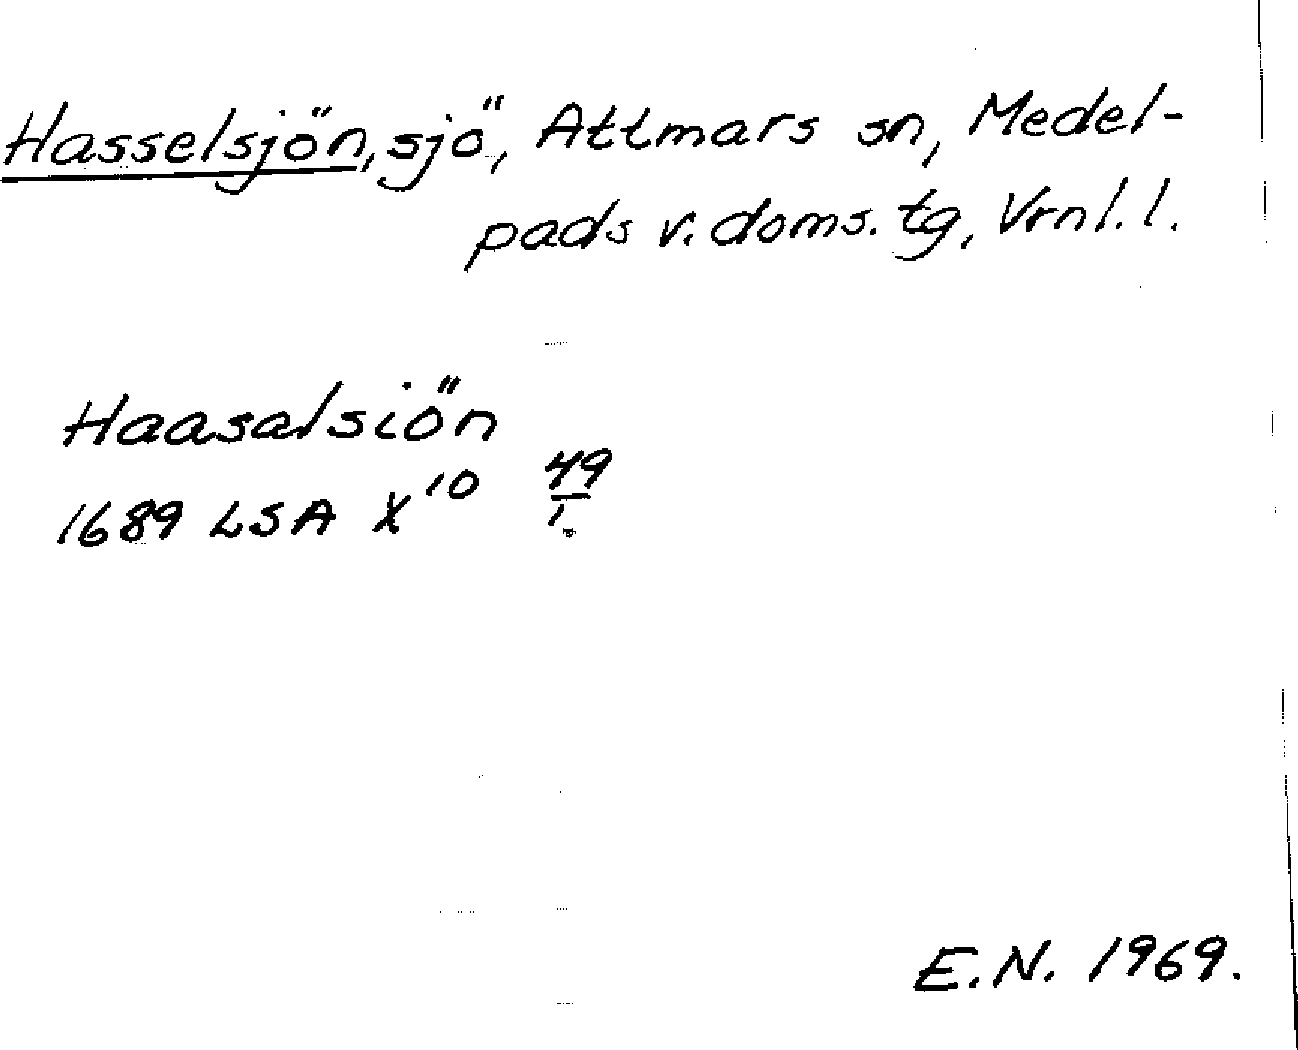 Hasselsjön, sjö, Attmars sn, Medel-
pads v. doms. tg, Vrnl. l.
Haasalsiön
1689 LSA X¹⁰ 49/1
E.N. 1969.